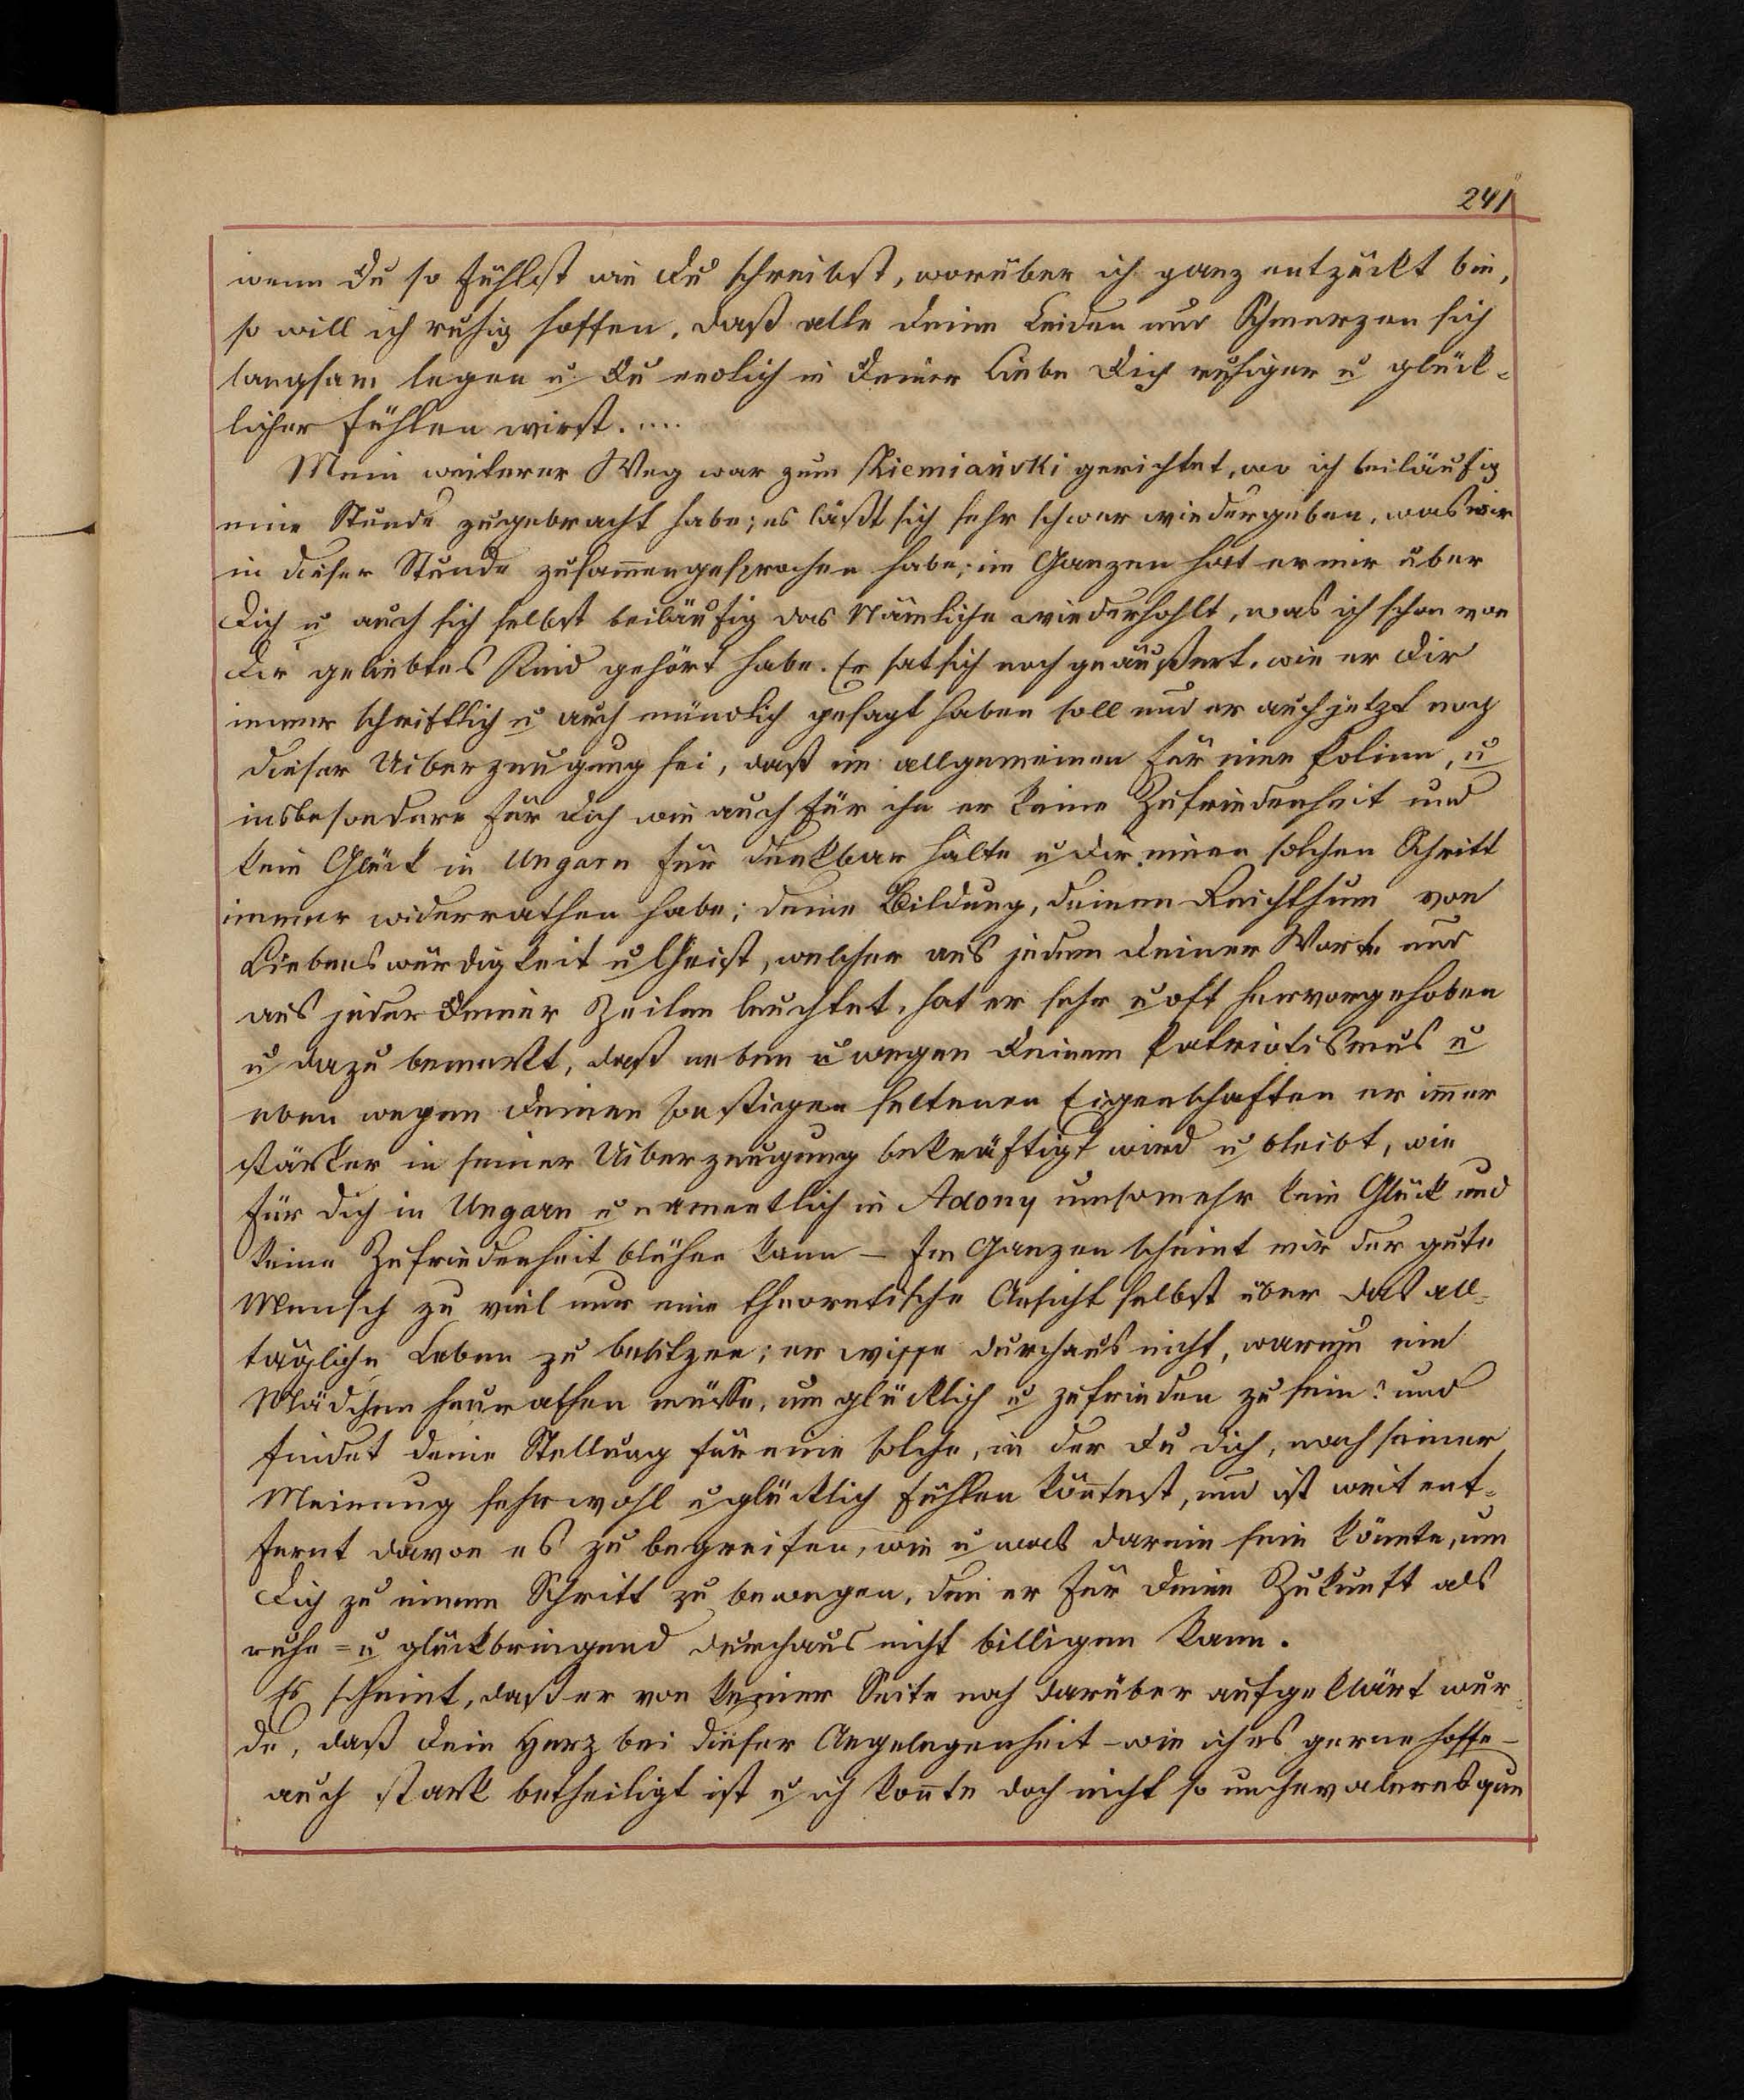 241
wenn Du so fühlst wie Du schreibst, worüber ich ganz entzückt bin,
so will ich ruhig hoffen, daß alle deine Leiden und Schmerzen sich
langsam legen u Du endlich in Deiner Liebe Dich ruhiger u glück-
licher fühlen wirst.....
Mein weiterer Weg war zum Riemiański gerichtet, wo ich beiläufig
eine Stunde zugebracht habe; es läßt sich sehr schwer wiedergeben, was wir
in dieser Stunde zusam̄engesprochen habe; im Ganzen hat er mir über
Dich u auch sich selbst beiläufig das Nämliche wiederhohlt, was ich schon von
Dir geliebtes Kind gehört habe. Er hat sich noch geäußert, wie er Dir
immer schriftlich u auch mündlich gesagt haben soll und er auch jetzt noch
dieser Uiberzeugung sei, daß im allgemeinen für eine Polinn, u
insbesondere für Dich wie auch für ihn er keine Zufriedenheit und
kein Glück in Ungarn für denkbar halte u Dir einen solchen Schritt
immer widerrathen habe; deine Bildung, deinen Reichthum von
Liebenswürdigkeit u Geist, welcher aus jedem deiner Worte und
aus jeder Deiner Zeilen leuchtet, hat er sehr u oft hervorgehoben
u dazu bemerkt, daß neben u wegen Deinem Patriotismus u
eben wegen Deinen sonstigen seltenen Eigenschaften er im̄er
stärker in seiner Uiberzeugung bekräftigt wird u bleibt, wie
für Dich in Ungarn u namentlich in Adony umsomehr kein Glück und
keine Zufriedenheit blühen kann – Im Ganzen scheint mir der gute
Mensch zu viel nur eine theoretische Ansicht selbst über das all-
tägliche Leben zu besitzen; er wisse durchaus nicht, warum ein
Mädchen heurathen müsse, um glücklich u zufrieden zu sein? und
findet deine Stellung für eine solche, in der Du Dich, nach seiner
Meinung sehr wohl u glücklich fühlen kön̄test, und ist weit ent-
fernt davon es zu begreifen, wie u was darein sein könnte, um
Dich zu einem Schritt zu bewegen, den er für Deine Zukunft als
ruhe- u glückbringend durchaus nicht billigen kann.
Es scheint, daß er von keiner Seite noch darüber aufgeklärt wur-
de, daß Dein Herz bei dieser Angelegenheit – wie ich es gerne hoffe –
auch stark betheiligt ist u ich kon̄te doch nicht so unchevaleresque